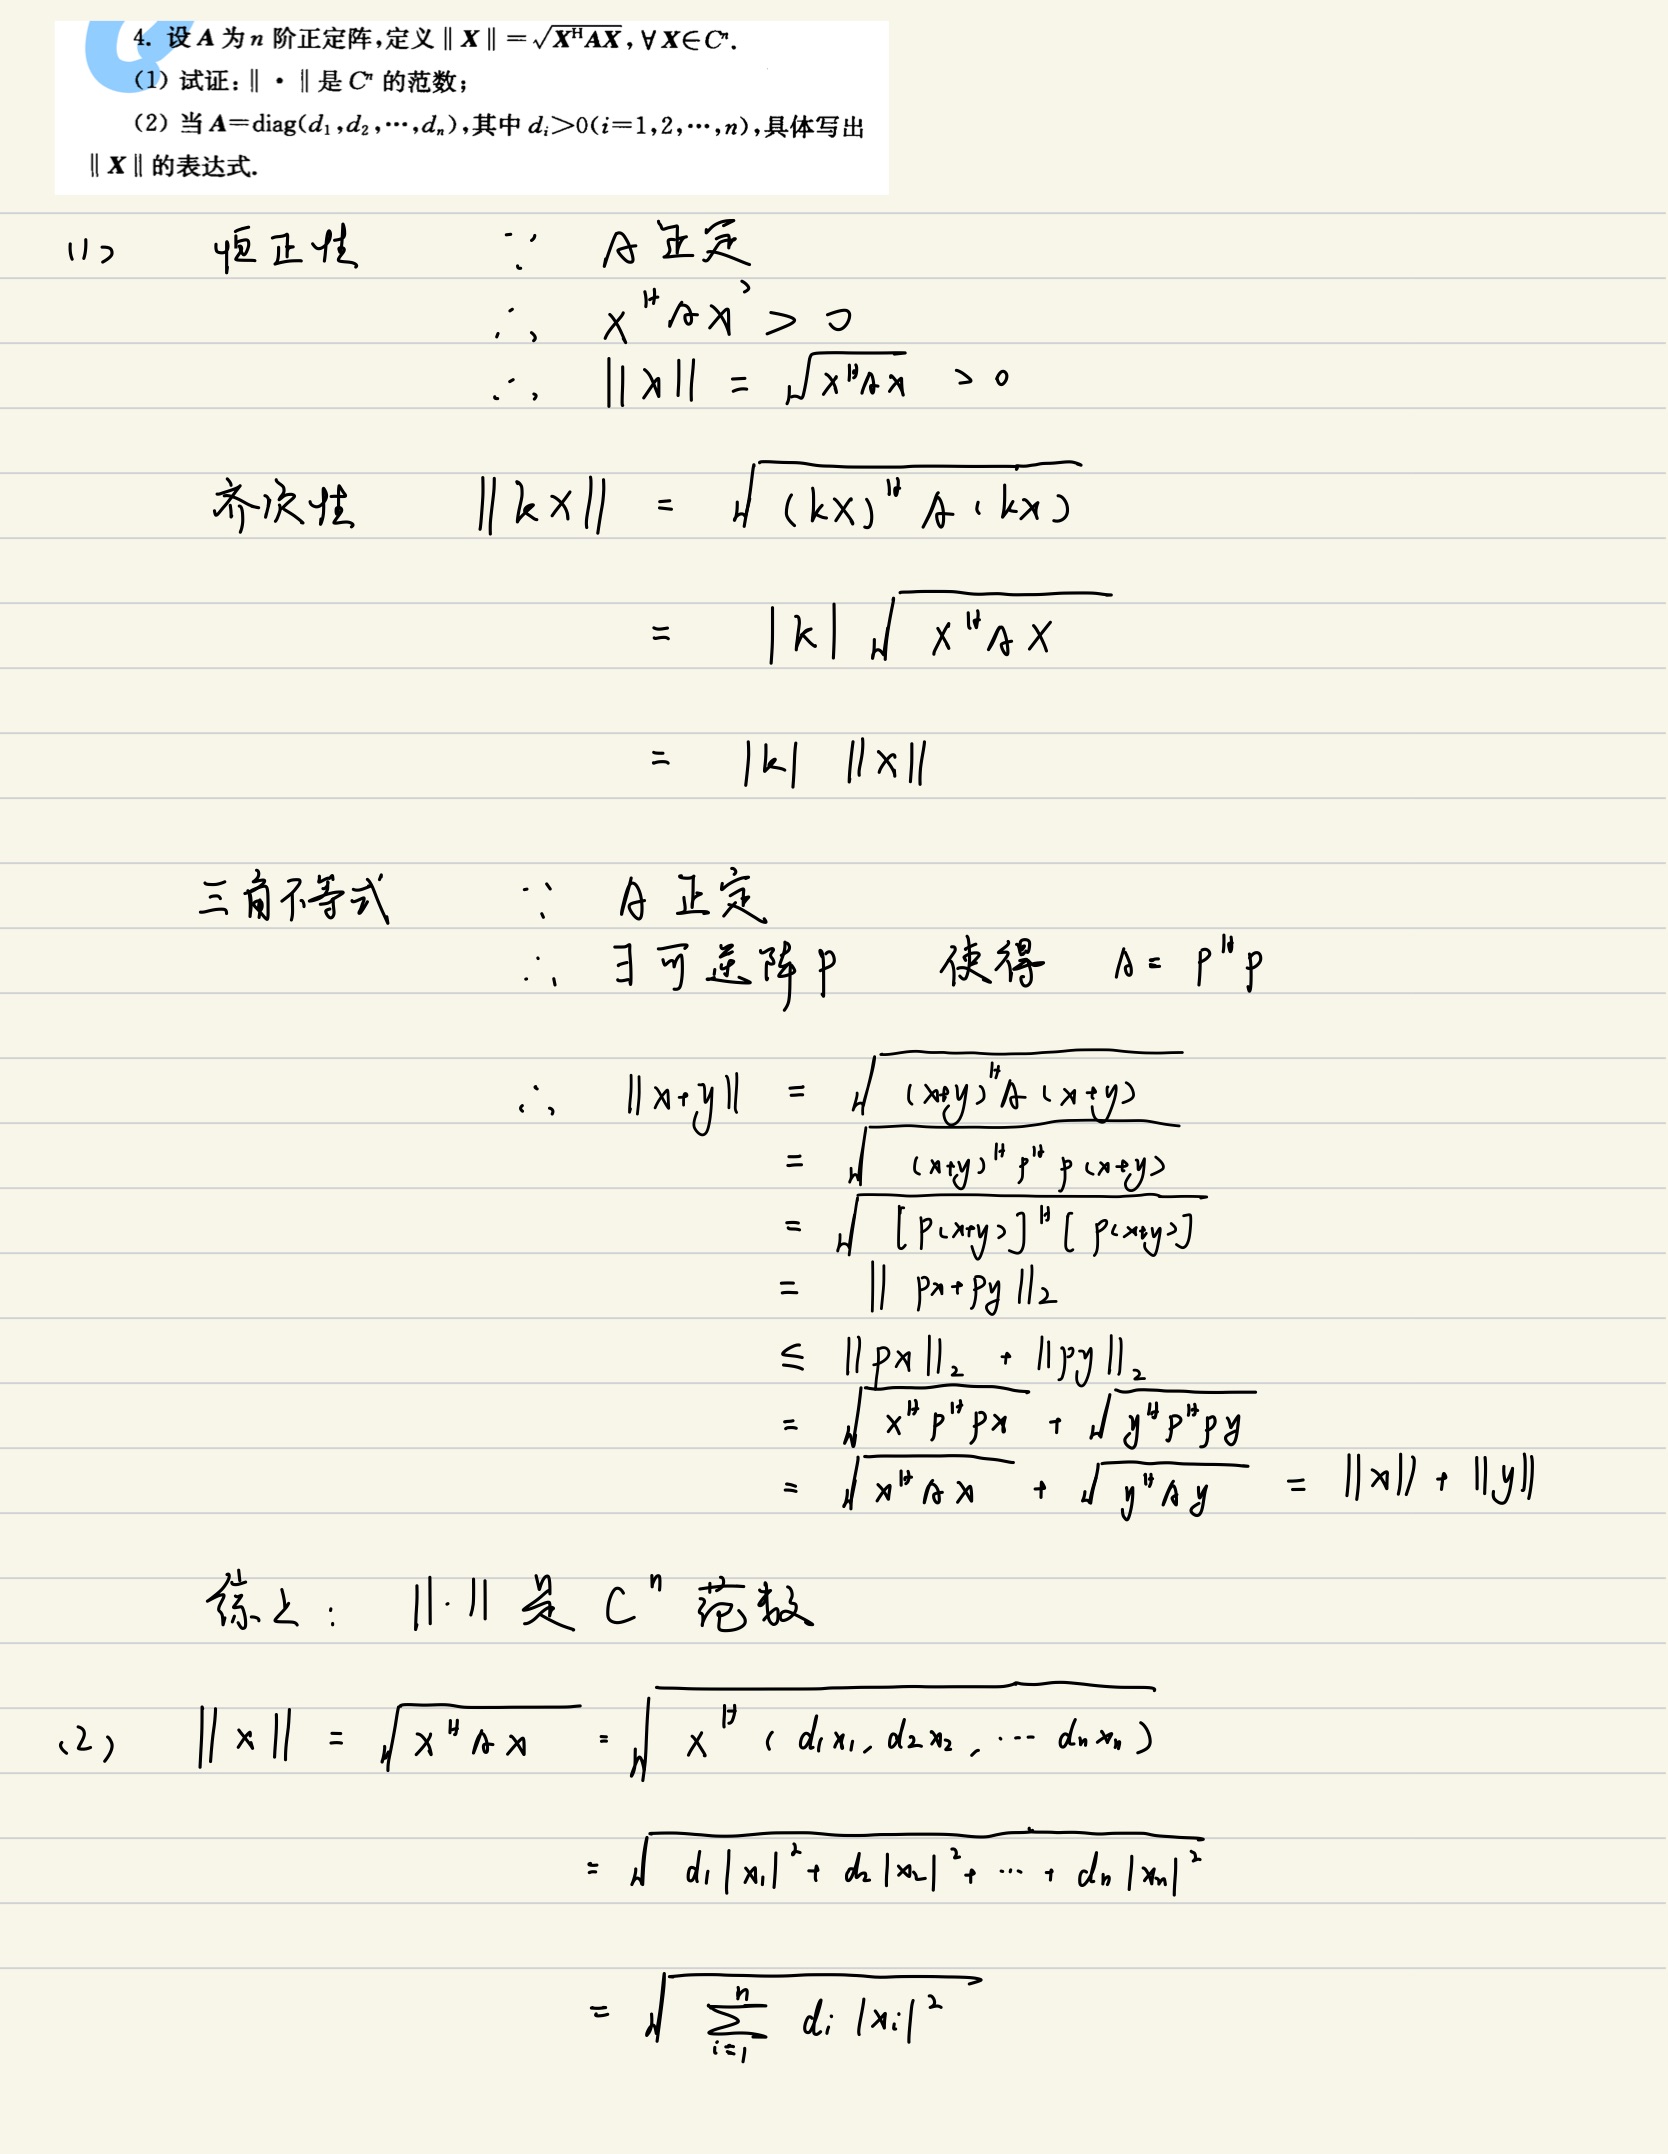 4. 设 A 为 n 阶正定阵,定义 ‖X‖=√(XᴴAX), ∀X∈Cⁿ.
(1) 试证:‖·‖是 Cⁿ 的范数;
(2) 当 A=diag(d₁,d₂,⋯,dₙ),其中 dᵢ>0(i=1,2,⋯,n),具体写出
‖X‖的表达式.
(1) 恒正性 ∵ A 正定
∴ xᴴAx > 0
∴ ‖x‖ = √(xᴴAx) > 0
齐次性 ‖kx‖ = √((kx)ᴴA(kx))
= |k| √(xᴴAx)
= |k| ‖x‖
三角不等式 ∵ A 正定
∴ ∃可逆阵P 使得 A = PᴴP
∴ ‖x+y‖ = √((x+y)ᴴA(x+y))
= √((x+y)ᴴPᴴP(x+y))
= √([P(x+y)]ᴴ[P(x+y)])
= ‖Px+Py‖₂
≤ ‖Px‖₂ + ‖Py‖₂
= √(xᴴPᴴPx) + √(yᴴPᴴPy)
= √(xᴴAx) + √(yᴴAy) = ‖x‖ + ‖y‖
综上: ‖·‖ 是 Cⁿ 范数
(2) ‖x‖ = √(xᴴAx) = √(xᴴ(d₁x₁, d₂x₂, ⋯ dₙxₙ))
= √(d₁|x₁|² + d₂|x₂|² + ⋯ + dₙ|xₙ|²)
= √(∑ⁿᵢ₌₁ dᵢ|xᵢ|²)